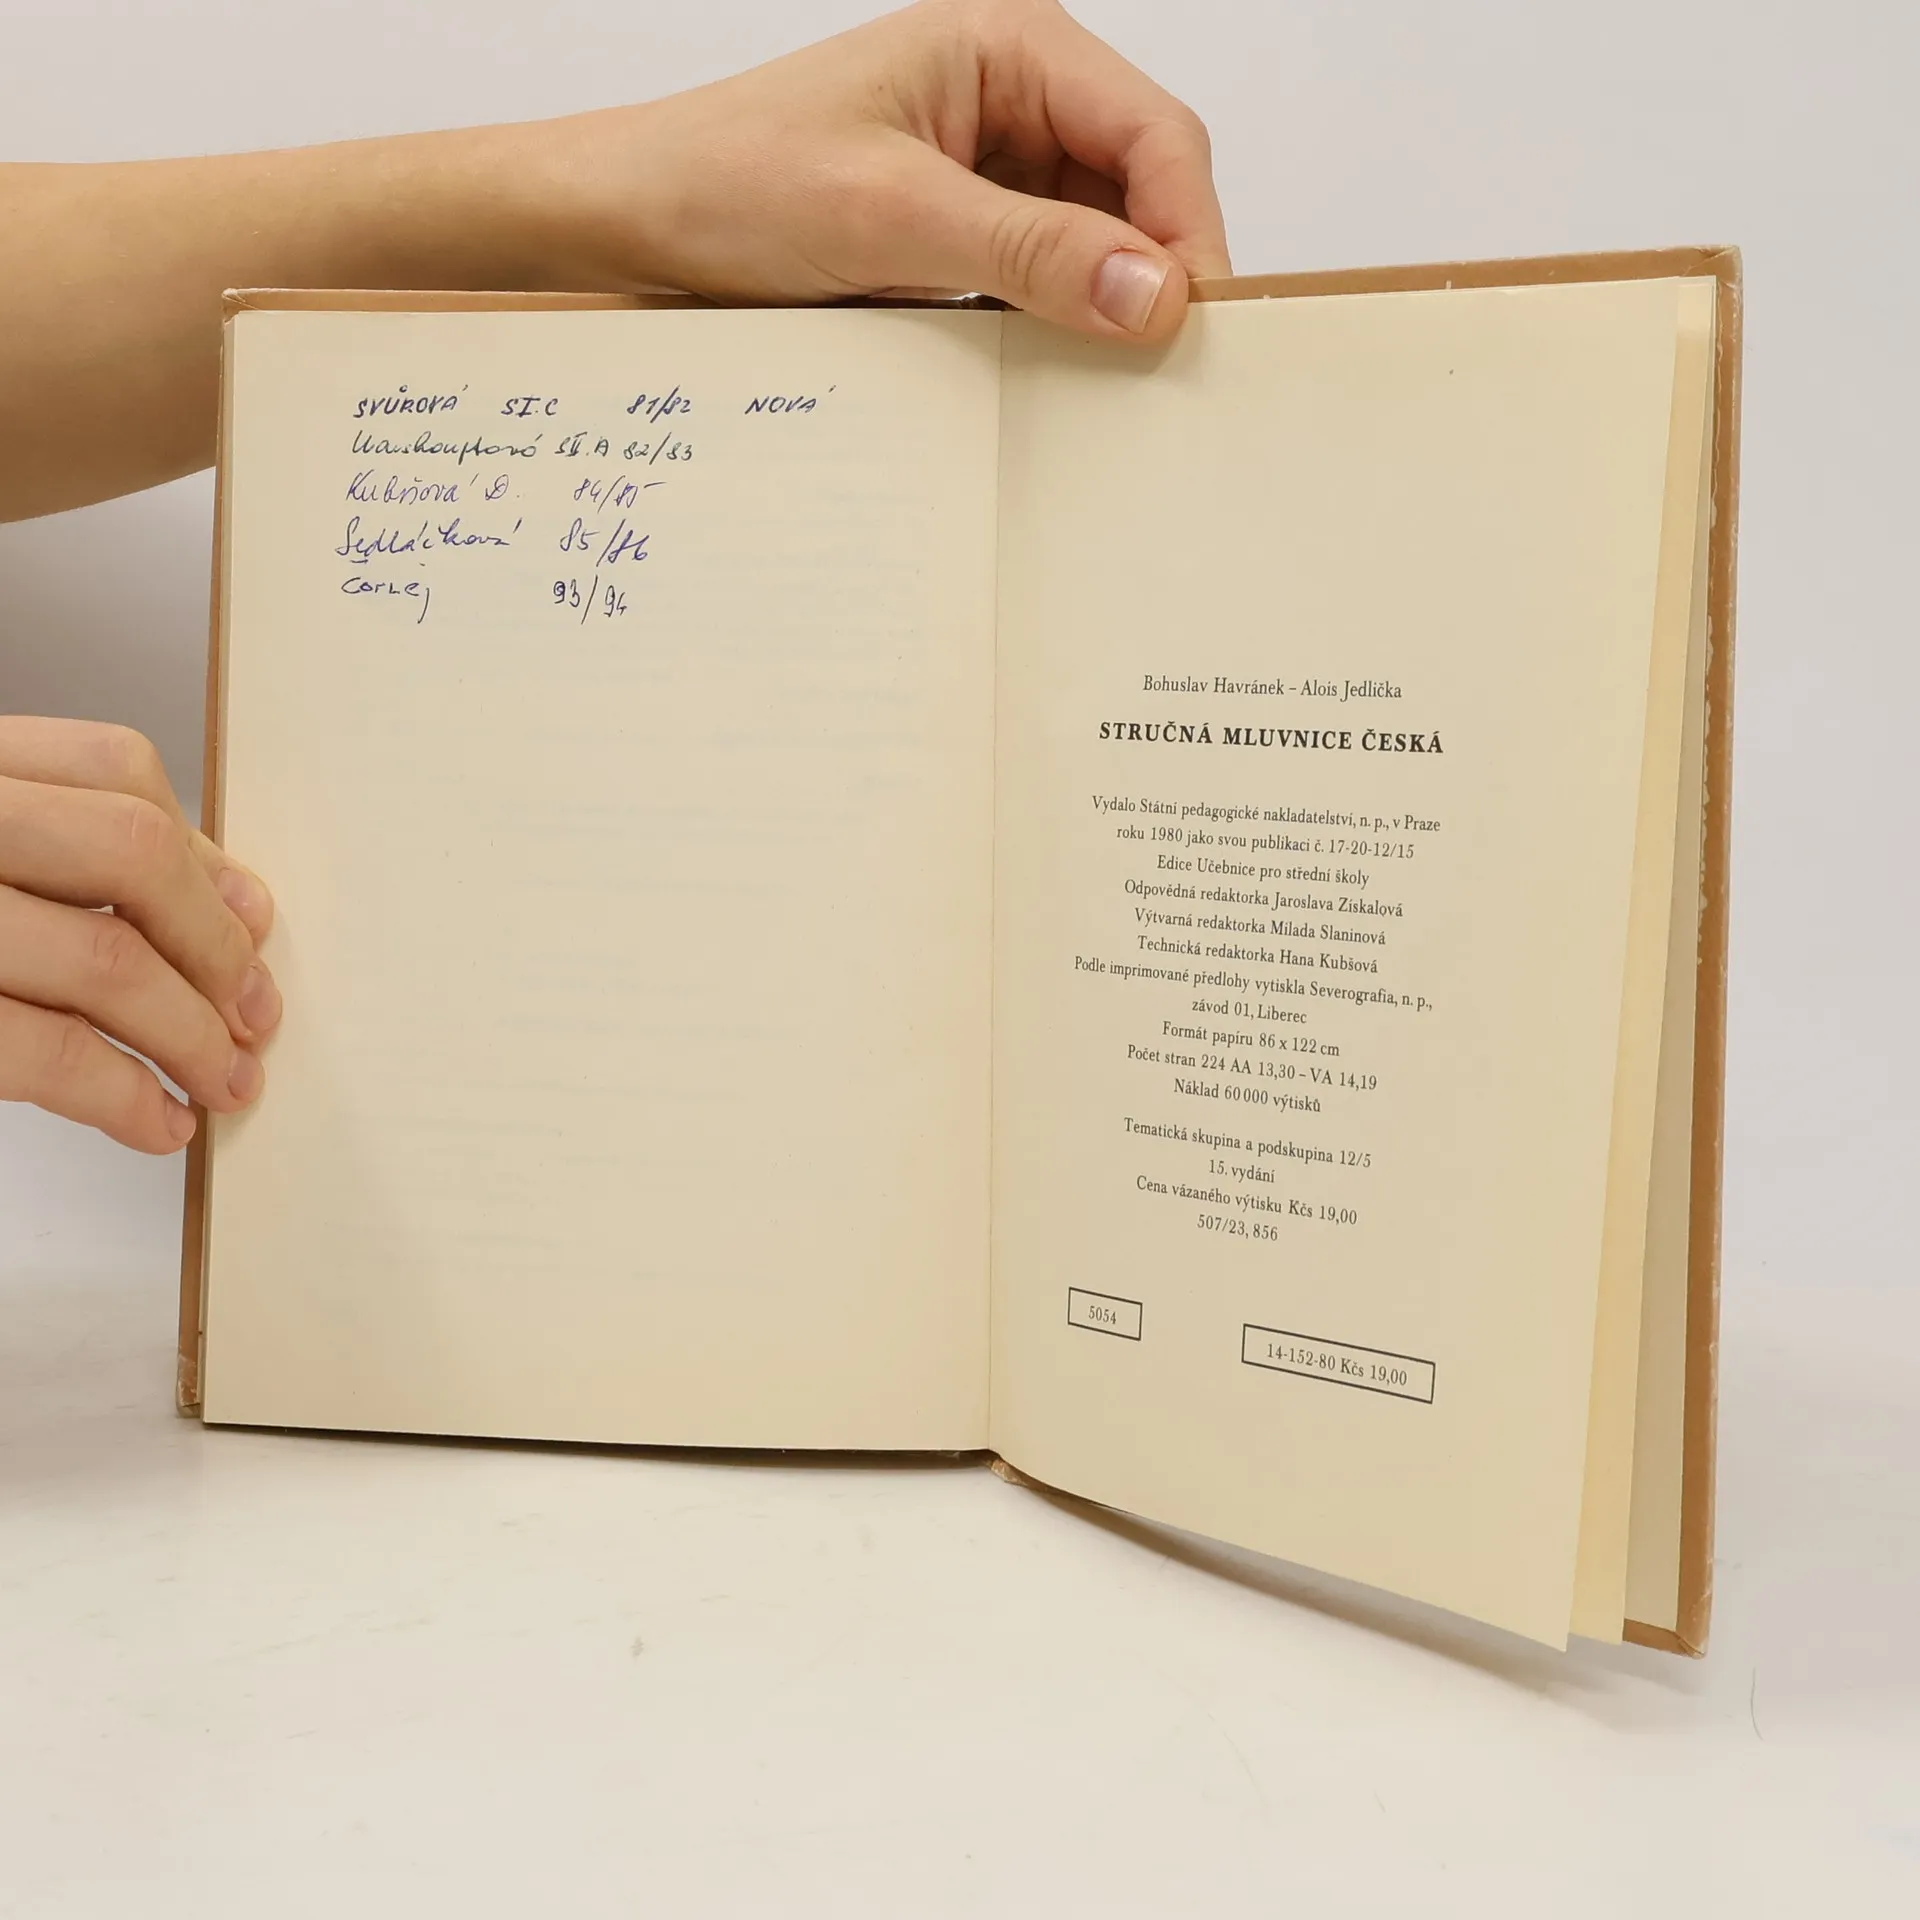 SVŮROVÁ SI.C 81/82 NOVÁ
SII.A 82/83
D. 84/85
Sedláčková 85/86
93/94
Bohuslav Havránek – Alois Jedlička
STRUČNÁ MLUVNICE ČESKÁ
Vydalo Státní pedagogické nakladatelství, n. p., v Praze
roku 1980 jako svou publikaci č. 17-20-12/15
Edice Učebnice pro střední školy
Odpovědná redaktorka Jaroslava Získalová
Výtvarná redaktorka Milada Slaninová
Technická redaktorka Hana Kubšová
Podle imprimované předlohy vytiskla Severografia, n. p.,
závod 01, Liberec
Formát papíru 86 x 122 cm
Počet stran 224 AA 13,30 – VA 14,19
Náklad 60 000 výtisků
Tematická skupina a podskupina 12/5
15. vydání
Cena vázaného výtisku Kčs 19,00
507/23, 856
5054
14-152-80 Kčs 19,00